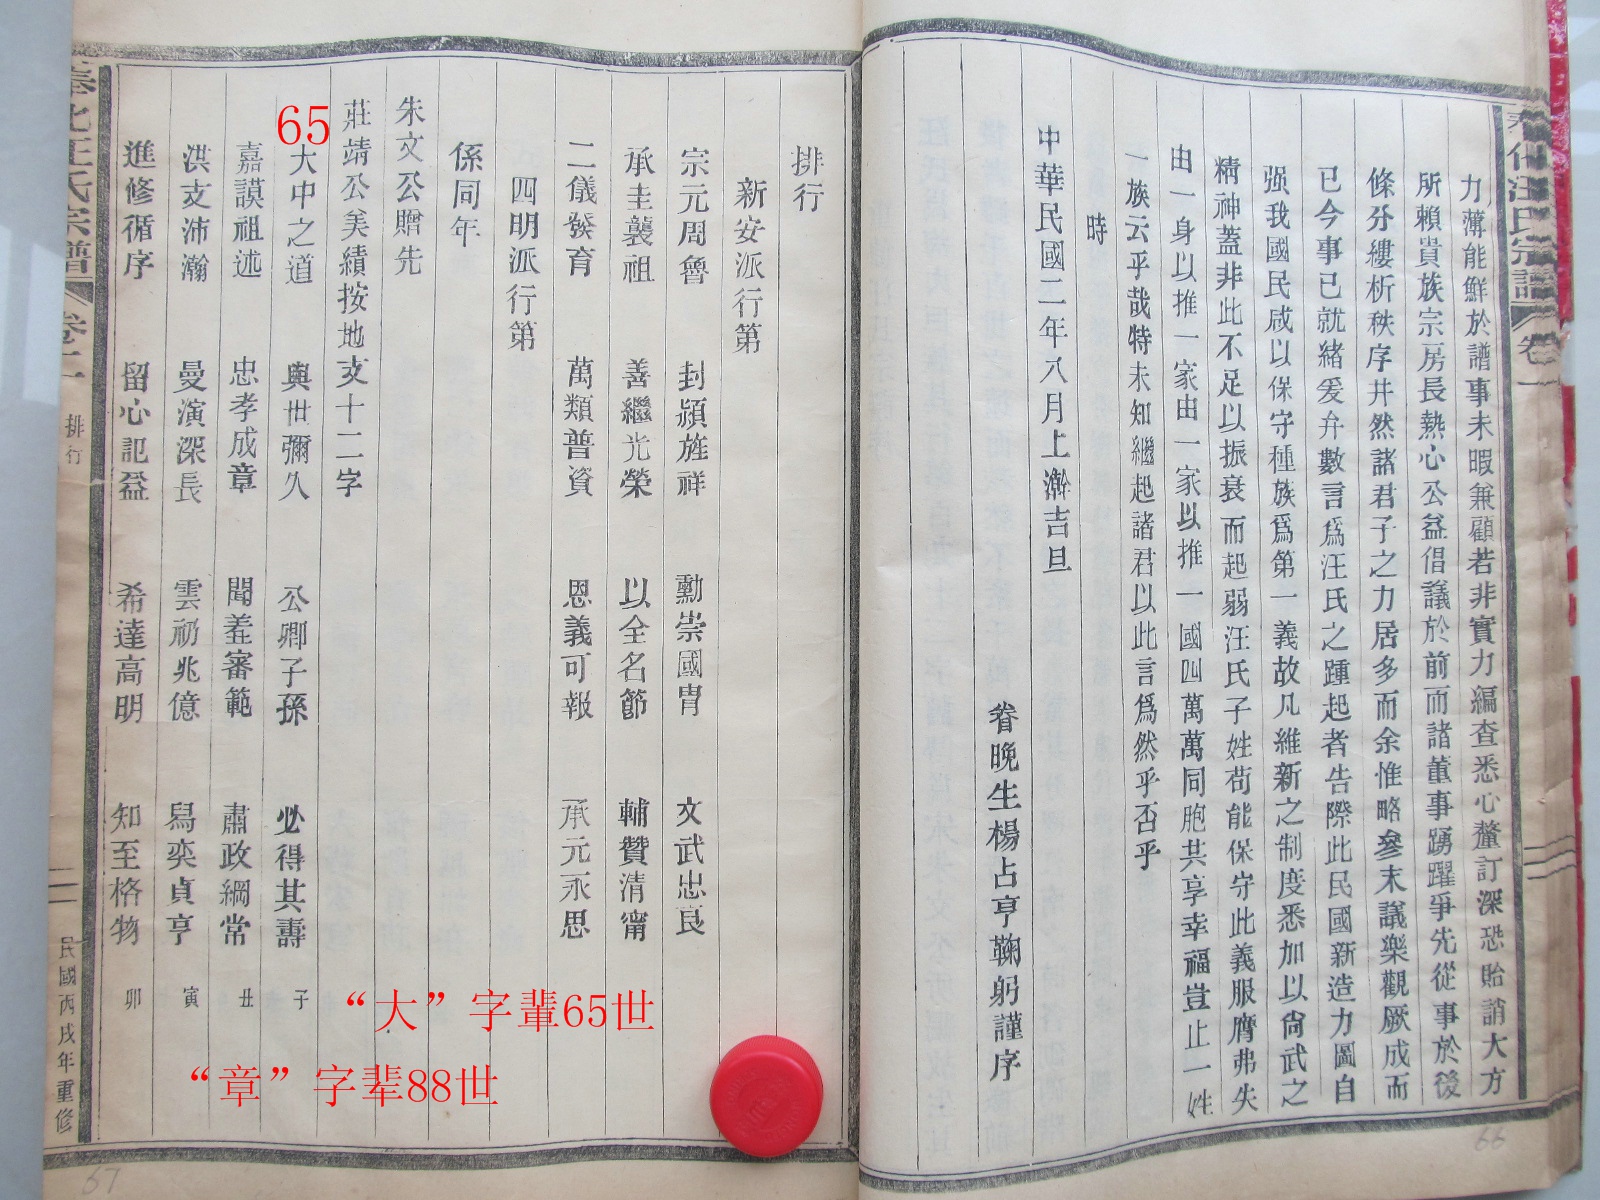 奉化汪氏宗譜
卷一
力薄能鮮於譜事未暇兼顧若非實力編查悉心釐訂深恐貽誚大方
所賴貴族宗房長熱心公益倡議於前而諸董事踴躍爭先從事於後
條分縷析秩序井然諸君子之力居多而余惟略參末議樂觀厥成而
已今事已就緒爰弁數言爲汪氏之踵起者告際此民國新造力圖自
强我國民咸以保守種族爲第一義故凡維新之制度悉加以尙武之
精神蓋非此不足以振衰而起弱汪氏子姓苟能保守此義服膺弗失
由一身以推一家由一家以推一國四萬萬同胞共享幸福豈止一姓
一族云乎哉特未知繼起諸君以此言爲然乎否乎
時
中華民國二年八月上澣吉旦
眷晚生楊占亨鞠躬謹序
66
排行
新安派行第
宗元周魯 封潁旌祥 勳崇國冑 文武忠良
承圭襲祖 善繼光榮 以全名節 輔贊清甯
二儀發育 萬類普資 恩義可報 承元永思
四明派行第
係同年
朱文公贈先
莊靖公美績按地支十二字
65
大中之道 與世彌久 公卿子孫 必得其壽 子
嘉謨祖述 忠孝成章 聞羞審範 肅政綱常 丑
洪支沛瀚 曼演深長 雲礽兆億 舄奕貞亨 寅
進修循序 留心記益 希達高明 知至格物 卯
奉化汪氏宗譜
卷一 排行
民國丙戌年重修
“大”字輩65世
“章”字辈88世
67